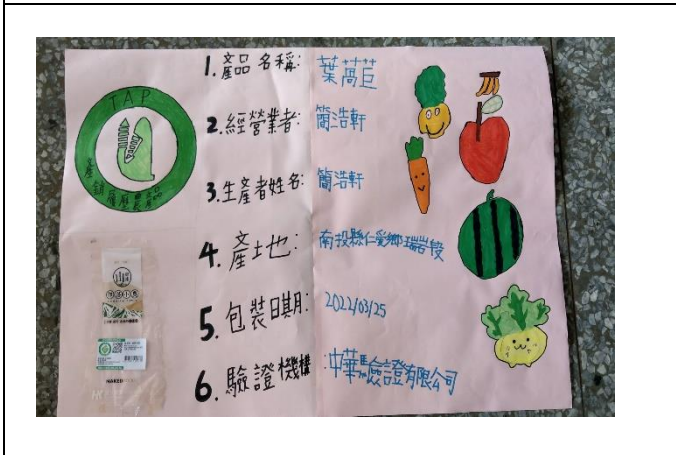 TAP
產銷履歷農產品
1.產品名稱:葉萵苣
2.經營業者:簡浩軒
3.生產者姓名:簡浩軒
4.產地:南投縣仁愛鄉瑞岩段
5.包裝日期:2022/03/25
6.驗證機構:中華驗證有限公司
NAKED